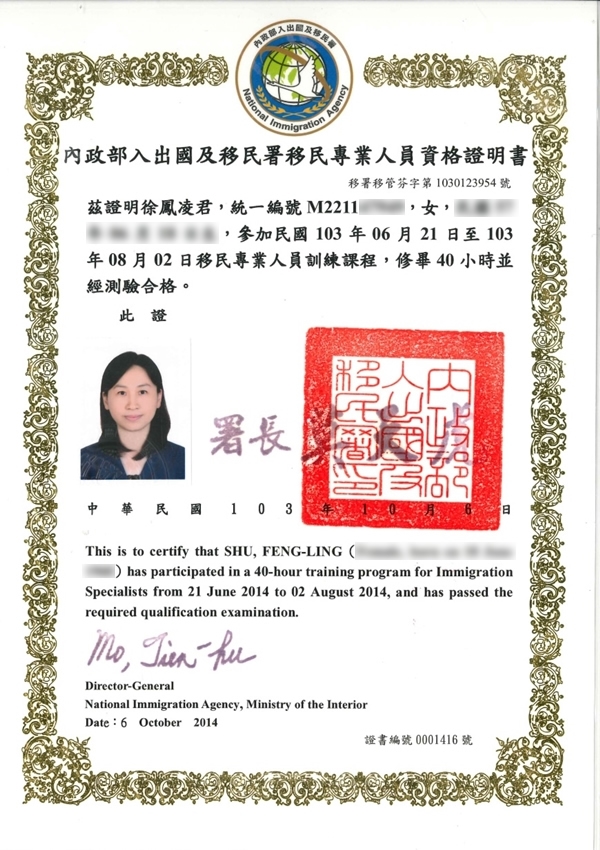 內政部入出國及移民署
National Immigration Agency
內政部入出國及移民署移民專業人員資格證明書
移署移管芬字第1030123954號
茲證明徐鳳凌君，統一編號M2211，女，
，參加民國 103 年 06 月 21 日至 103
年 08 月 02 日移民專業人員訓練課程，修畢 40 小時並
經測驗合格。
此證
內政部
入出國及
移民署印
署長
中華民國103年10月6日
This is to certify that SHU, FENG-LING (
) has participated in a 40-hour training program for Immigration
Specialists from 21 June 2014 to 02 August 2014, and has passed the
required qualification examination.
Mo, Tien-hu
Director-General
National Immigration Agency, Ministry of the Interior
Date：6 October 2014
證書編號 0001416 號